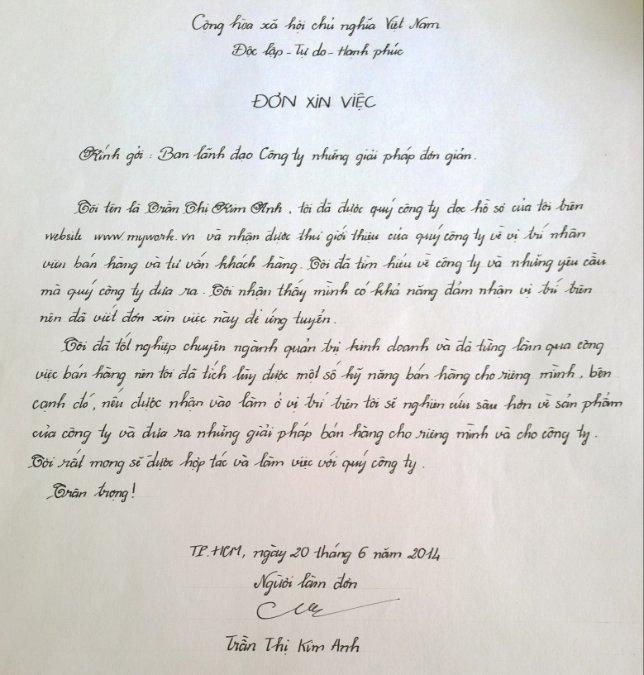 Cộng hòa xã hội chủ nghĩa Việt Nam
Độc lập - Tự do - Hạnh phúc
ĐƠN XIN VIỆC
Kính gởi : Ban lãnh đạo Công ty những giải pháp đơn giản.
Tôi tên là Trần Thị Kim Anh, tôi đã được quý công ty đọc hồ sơ của tôi trên
website www.mywork.vn và nhận được thư giới thiệu của quý công ty về vị trí nhân
viên bán hàng và tư vấn khách hàng. Tôi đã tìm hiểu về công ty và những yêu cầu
mà quý công ty đưa ra. Tôi nhận thấy mình có khả năng đảm nhận vị trí trên
nên đã viết đơn xin việc này để ứng tuyển.
Tôi đã tốt nghiệp chuyên ngành quản trị kinh doanh và đã từng làm qua công
việc bán hàng nên tôi đã tích lũy được một số kỹ năng bán hàng cho riêng mình, bên
cạnh đó, nếu được nhận vào làm ở vị trí trên tôi sẽ nghiên cứu sâu hơn về sản phẩm
của công ty và đưa ra những giải pháp bán hàng cho riêng mình và cho công ty.
Tôi rất mong sẽ được hợp tác và làm việc với quý công ty.
Trân trọng!
TP.HCM, ngày 20 tháng 6 năm 2014
Người làm đơn
Trần Thị Kim Anh